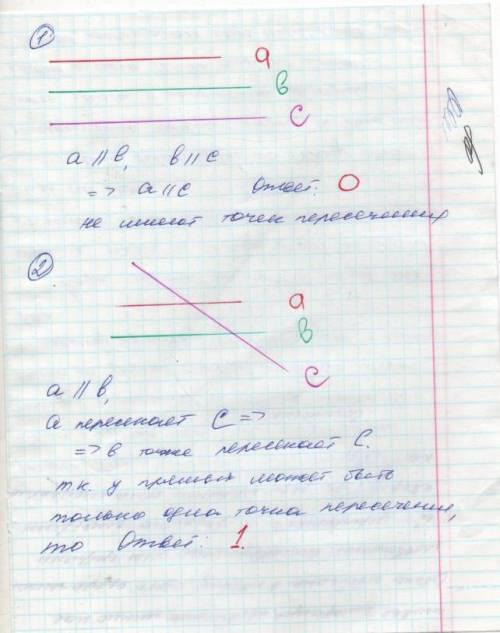 1
a
в
c
a // в, в // c
=> a // c Ответ: 0
не имеют точек пересечения
2
a
в
c
a // в,
a пересекает C =>
=> в тоже пересекает C.
т.к. у прямых может быть
только одна точка пересечения,
то Ответ: 1.